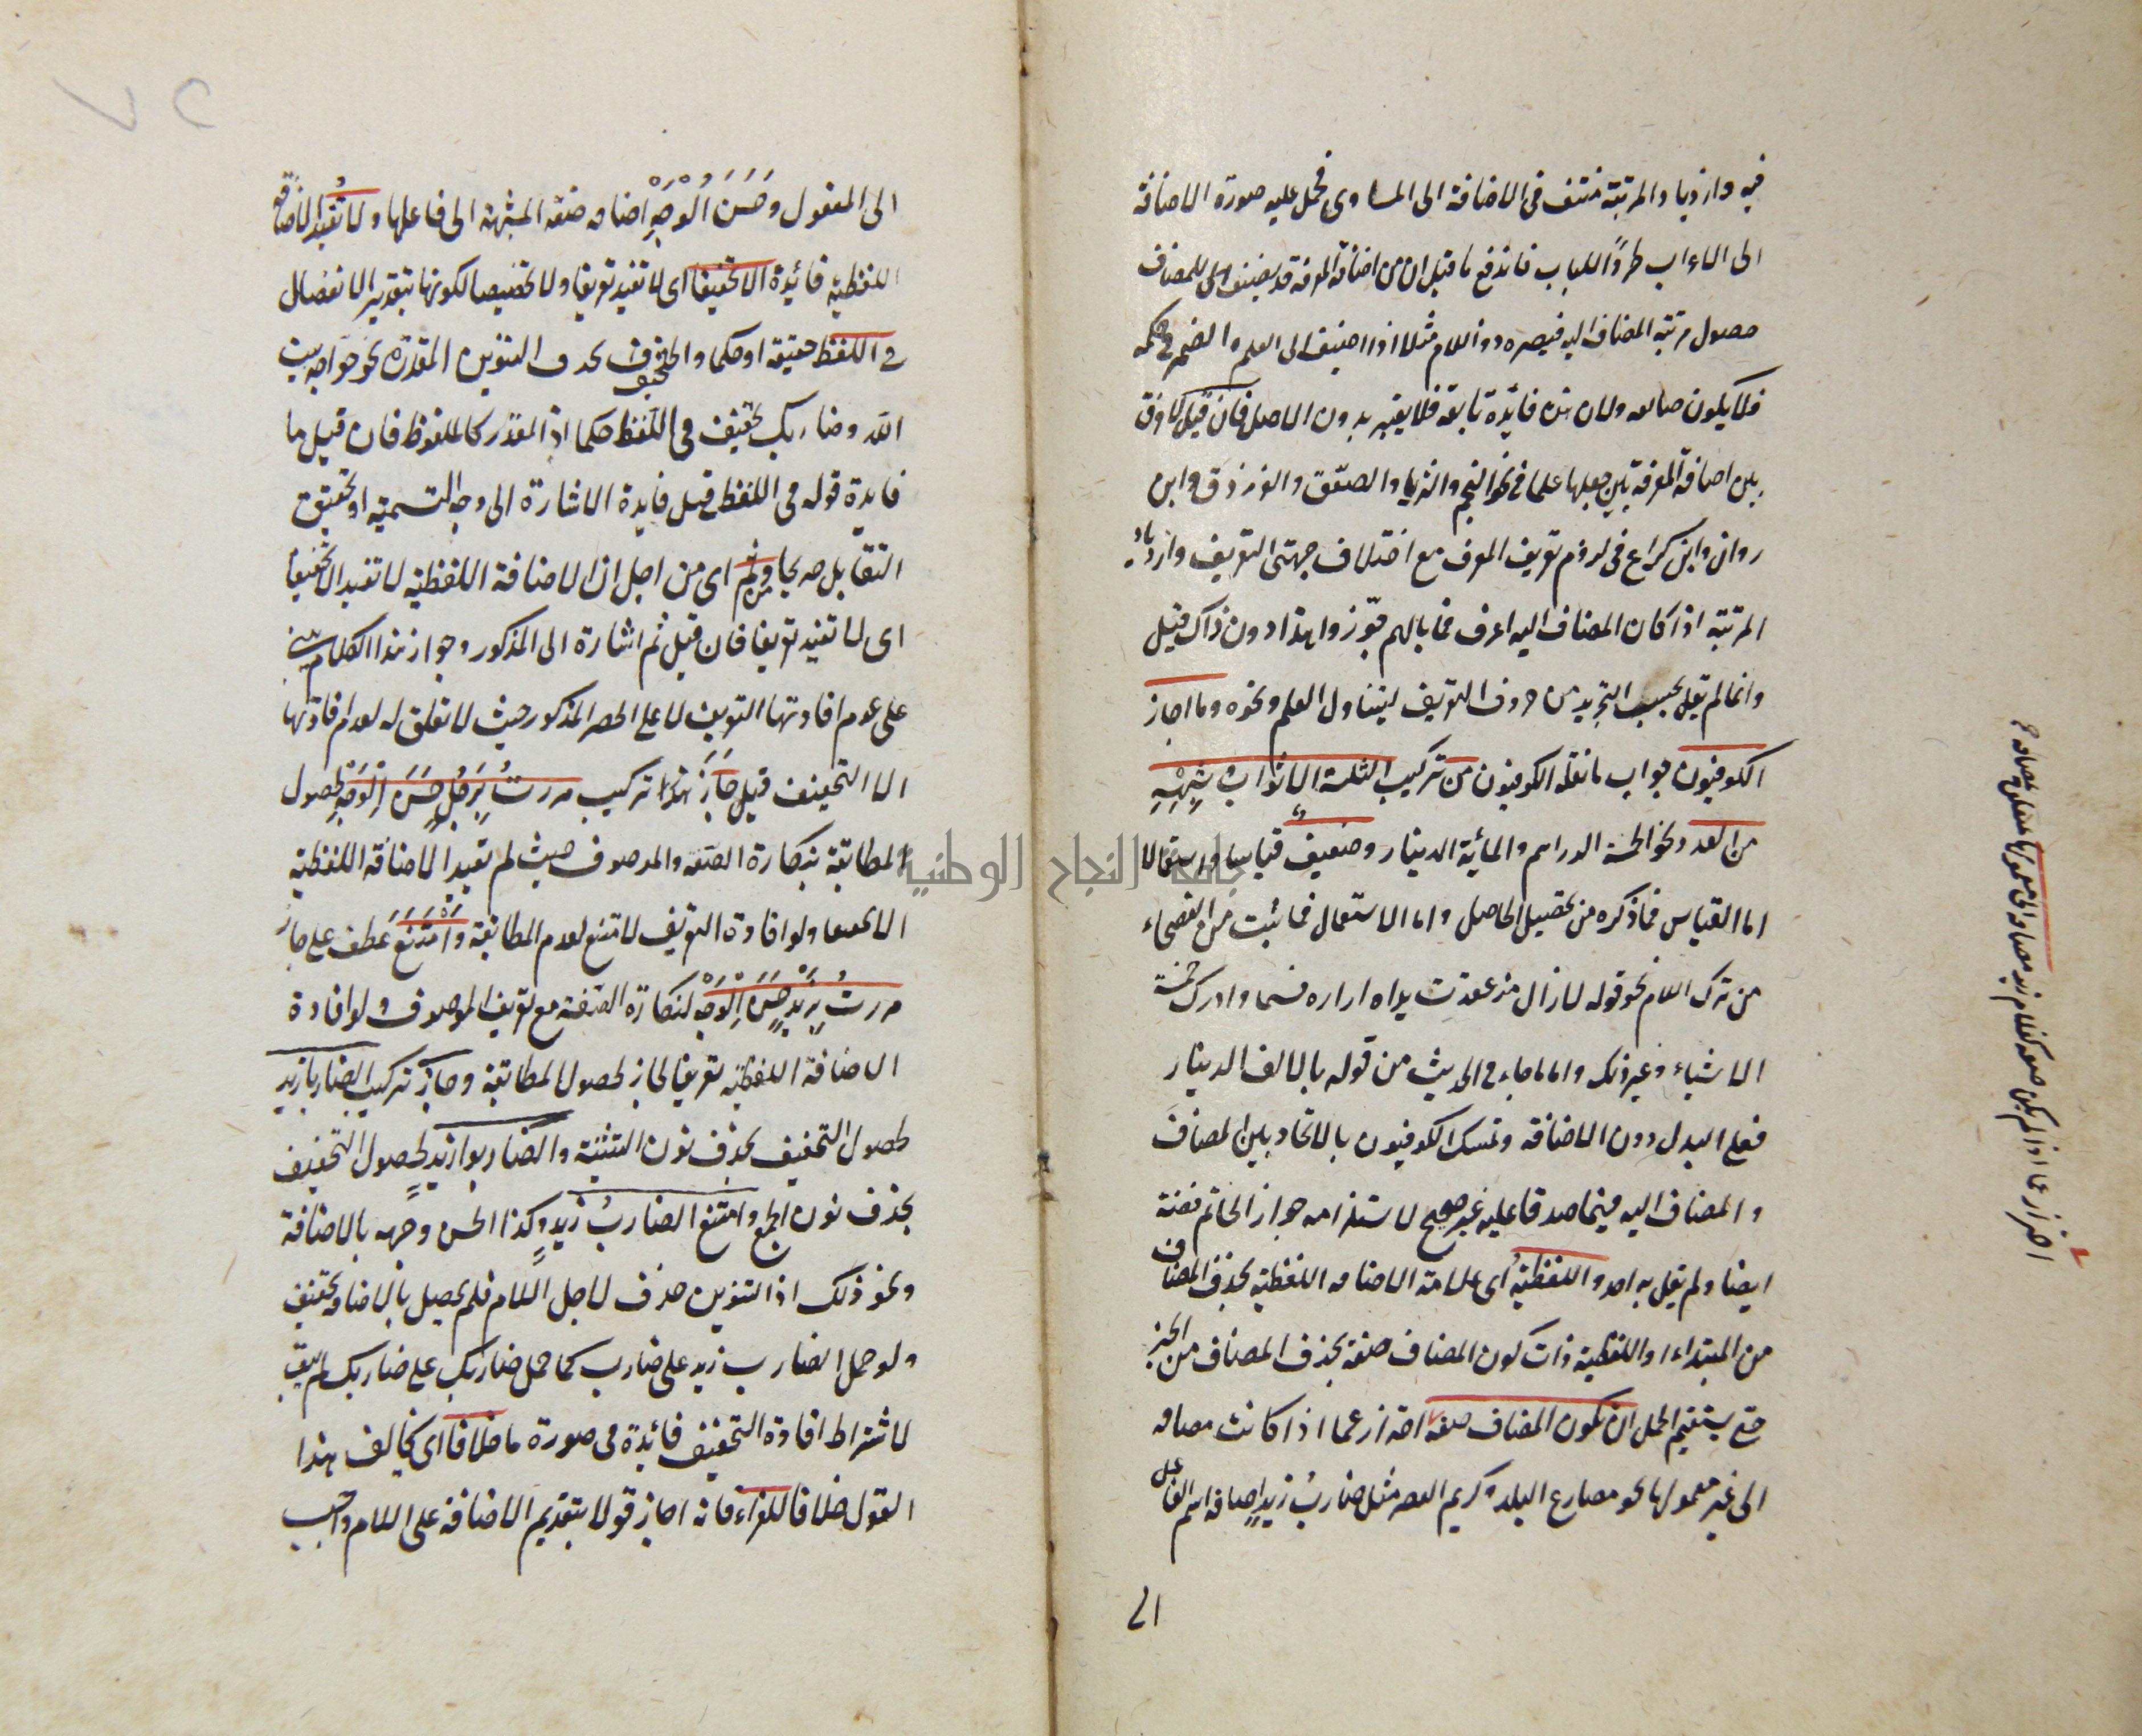 فيه وازدياد المرتبة منتف في الاضافة الى المساوى فحمل عليه صورة الاضافة
الى الاعراب طردًا للباب فاندفع ما قيل ان من اضافة المعرفة قد للمضاف
حصول مرتبة المضاف اليه فيصير ذو اللام مثلا اذا اضيف الى العلم والضمير في حكمه
فلا يكون ضائعه ولان هذه فائدة تابعة فلا يعتبر بدون الاصل فان قيل لا فرق
بين اضافة المعرفة بين جعلها علما في نحو النجم والثريا والصعق والفرزدق وابن
وابن كراع في لزوم تعريف المعرف مع اختلاف جهتى التعريف وازدياد
المرتبة اذا كان المضاف اليه اعرف فما بالهم جوزوا هذا دون ذاك قيل
وانما لم يقل بحسب التجريد من حروف التعريف ليتناول العلم ونحوه وما اجاز
الكوفيون جواب ما نقله الكوفيون من تركيب الثلثة الاثواب وشبهه
من العدد ونحو الخمسة الدراهم والمائة الدينار وضعيف قياسا واستعمالا
اما القياس فما ذكره من تحصيل الحاصل واما الاستعمال فما ثبت من الفصحاء
من ترك اللام نحو قوله لازال مذ عقدت يداه ازاره فسما وادرك خمسة
الاشباء وغير ذلك واما ما جاء في الحديث من قوله بالالف الدينار
فعلى البدل دون الاضافة وتمسك الكوفيون بالاتحاد بين المضاف
والمضاف اليه فيما صدقا عليه غير صحيح لاستلزامه جواز الخاتم فضة
ايضا ولم يقل به احد واللفظية اى علامة الاضافه اللفظية بحذف المضاف
من المبتداء او اللفظية ذات كون المضاف صفة بحذف المضاف من الخبر
حتى يستقيم الحمل ان يكون المضاف صفه احتراز عما اذا كانت مضافه
الى غير معمولها نحو مصارع البلد وكريم العصر مثل ضاربُ زيدٍ اضافه اسم الفاعل
الى
احتراز عما اذا لم يكن صفه كغلام زيد مضافه الى معمولها
٧٢
الى المفعول وحَسَنُ الْوَجْهِ اضافه صفة المشبهة الى فاعلها ولا تُفيد الاضافة
اللفظية فائدة الا تخفيفا اى لا تفيد تعريفا ولا تخصيصا لكونها بتقدير الانفصال
في اللفظ حقيقة او حكما والتخفيف بحذف التنوين المقدرة نحو حواج بيت
الله وضاربك تخفيف في اللفظ حكما اذ المقدر كالملفوظ فان قيل ما
فايدة قوله في اللفظ قيل فايدة الاشارة الى وجه التسمية او تحقيق
التقابل صريحا ومن ثم اى من اجل ان الاضافة اللفظية لا تفيد الا تخفيفا
اى لا تفيد تعريفا فان قيل ثم اشارة الى المذكور وجواز هذا الكلام يبنى
على عدم افادتها التعريف لا على الحصر المذكور حيث لا تعلق له لعدم افادتها
الا التخفيف قيل جَازَ هذا تركيب مررتُ بِرَجُلٍ حَسَنِ الْوَجْهِ لحصول
المطابقة بنكارة الصفة والموصوف حيث لم تفيد الاضافة اللفظية
الا تخفيفا ولو افادة التعريف لامتنع لعدم المطابقة وَامْتَنَعَ عطف على جاز
مررتُ بِزَيْدٍ حَسَنِ الْوَجْهِ لنكارة الصفة مع تعريف الموصوف ولو افادة
الاضافة اللفظية تعريفا لجاز لحصول المطابقة وجاز تركيب الضاربا زيد
لحصول التخفيف بحذف نون التثنية والضاربوا زيد لحصول التخفيف
بحذف نون الجمع وامتنع الضاربُ زيدٍ وكذا الحسن وجهه بالاضافة
ونحو ذلك اذ التنوين حذف لاجل اللام فلم يحصل بالاضافه تخفيف
ولو حمل الضارب زيد على ضارب كما حمل ضاربك على ضاربك لم
لاشتراط افادة التخفيف فائدة في صورة ما خلافا اى يخالف هذا
القول خلافا للفراء فانه اجاز قولا بتقديم الاضافة على اللام واجيب
جامعة النجاح الوطنية